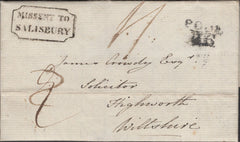 MISSENT TO
SALISBURY
James Crowdy Esqr
Solicitor
Highworth
Wiltshire